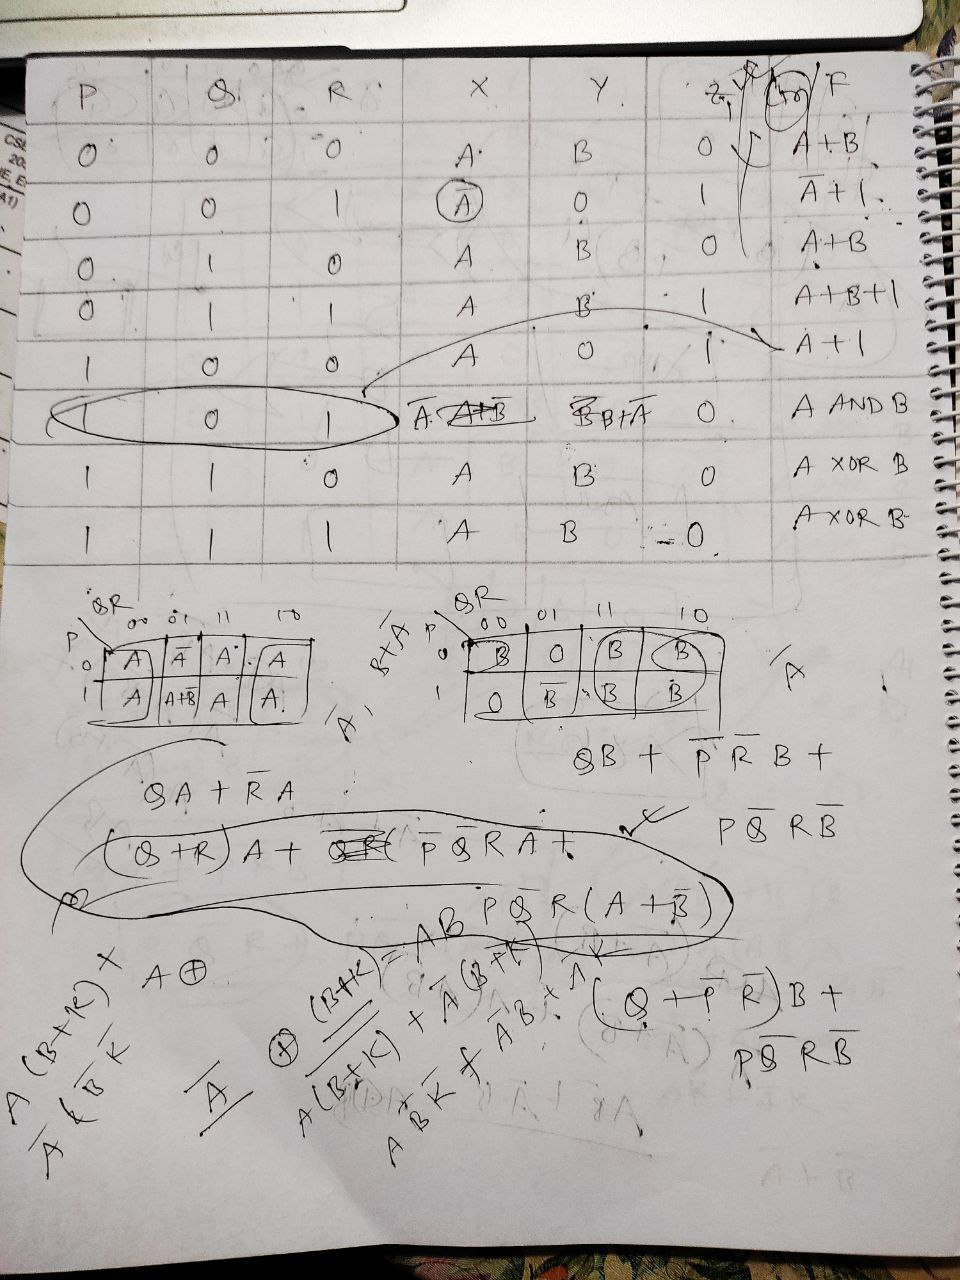 P Q R X Y Z₁ F
0 0 0 A B 0 A+B
0 0 1 A̅ 0 1 A̅+1
0 1 0 A B 0 A+B
0 1 1 A B 1 A+B+1
1 0 0 A 0 1 A+1
1 0 1 A̅ A+B̅ B̅ B+A̅ 0 A AND B
1 1 0 A B 0 A XOR B
1 1 1 A B 0 A XOR B
QR
P 00 01 11 10
0 A A̅ A A
1 A A+B̅ A A
B+A̅
A̅
QR
P 00 01 11 10
0 B 0 B B
1 0 B̅ B B
A̅
QB + P̅ R̅ B +
PQ̅RB̅
QA + R̅A
(Q+R)A + P̅Q̅RA̅ +
PQ̅R(A+B̅)
(Q+P̅R̅)B +
PQ̅RB̅
A(B+K) +
A̅(B̅K̅
A ⊕
A̅ ⊕ (B+K) = AB
A(B+K) + A̅(B+K)
AB̅K̅ + A̅B +